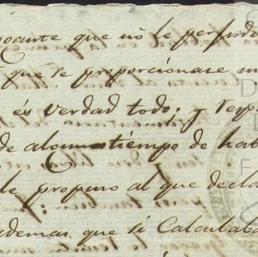 que no le perjudi
que se proporcionase
és verdad todo; y resp
de algun tiempo de hab
le propuso al que decla
ademas que si Calculaba